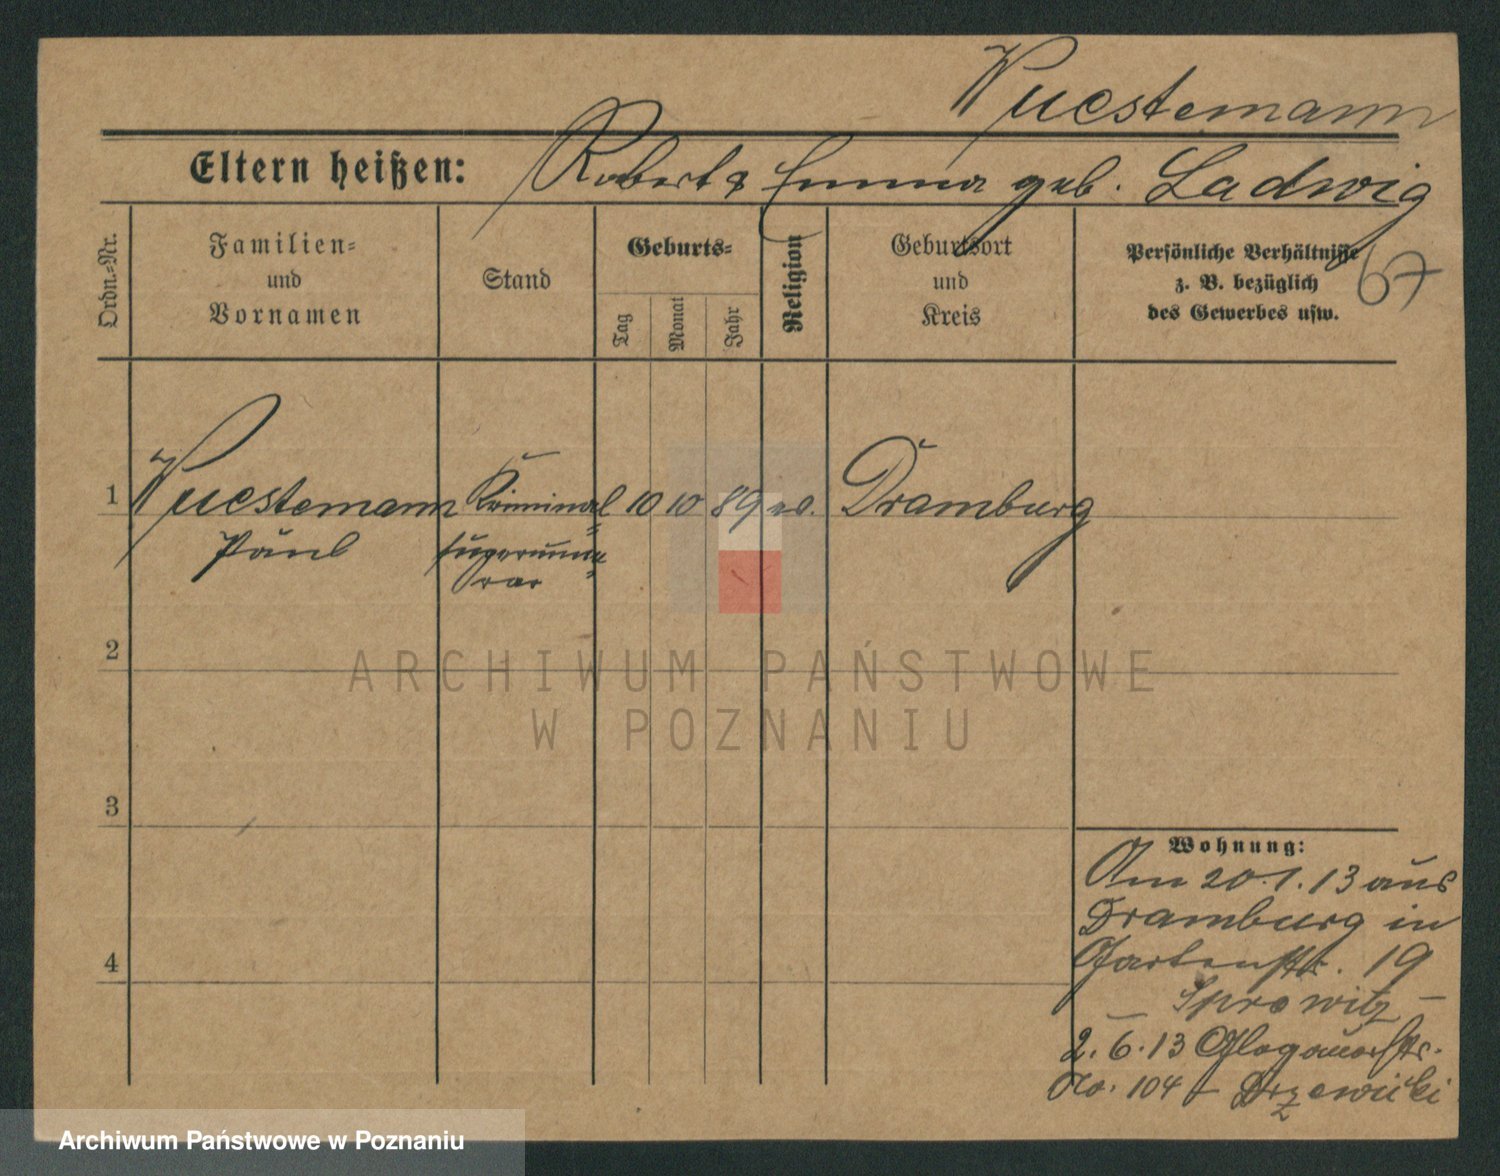 Wuestemann
Eltern heißen: Robert & Emma geb. Ladwig
Ordn.-Nr.
Familien-
und
Vornamen
Stand
Geburts-
Tag
Monat
Jahr
Religion
Geburtsort
und
Kreis
Persönliche Verhältnisse
z. B. bezüglich
des Gewerbes usw.
67
1 Wuestemann Kriminal 10 10 89 ev. Dramburg
Paul supernume
rar
2
ARCHIWUM PAŃSTWOWE
W POZNANIU
3
Wohnung:
Am 20.1.13 aus
Dramburg in
4
Gartenstr. 19
– Sprowitz –
2.6.13 Glogauerstr.
No. 104 – Drzewiecki
Archiwum Państwowe w Poznaniu